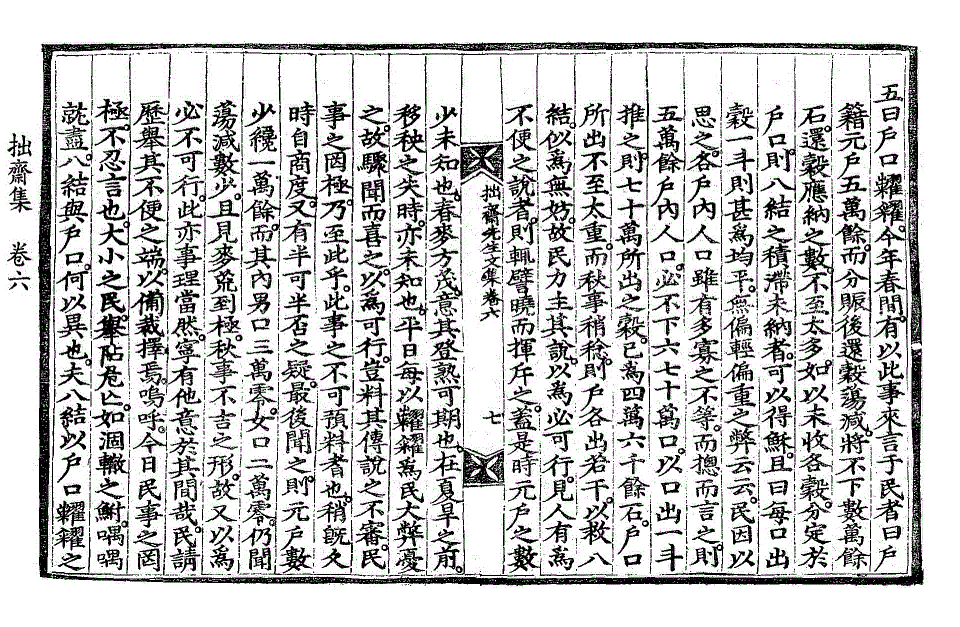 五曰戶口糶糴今年春間有以此事來言于民者曰戶
籍元戶五萬餘而分賑後還穀蕩減將不下數萬餘
石還穀應納之數不至太多如以未收各穀分定於
戶口則八結之積滯未納者可以得穌且曰每口出
穀一斗則甚爲均平無偏輕偏重之弊云云民因以
思之各戶內人口雖有多寡之不等而摠而言之則
五萬餘戶內人口必不下六七十萬口以口出一斗
推之則七十萬所出之穀已爲四萬六千餘石戶口
所出不至太重而秋事稍稔則戶各出若干以救八
結似爲無妨故民力主其說以爲必可行見人有爲
不便之說者則輒譬曉而揮斥之蓋是時元戶之數
拙齋先生文集卷六
七
少未知也春麥方茂意其登熟可期也在夏旱之前
移秧之失時亦未知也平日每以糶糴爲民大弊憂
之故驟聞而喜之以爲可行豈料其傳說之不審民
事之因極乃至此乎此事之不可預料者也稍旣久
時自商度又有半可半否之疑最後聞之則元戶數
少纔一萬餘而其內男口三萬零女口二萬零仍聞
蕩減數少且見麥荒到極秋事不吉之形故又以爲
必不可行此亦事理當然寧有他意於其間哉民請
歷舉其不便之端以備裁擇焉嗚呼今日民事之罔
極不忍言也大小之民擧阽危亡如涸轍之鮒喁喁
就盡八結與戶口何以異也夫八結以戶口糶糴之
拙齋集 卷六